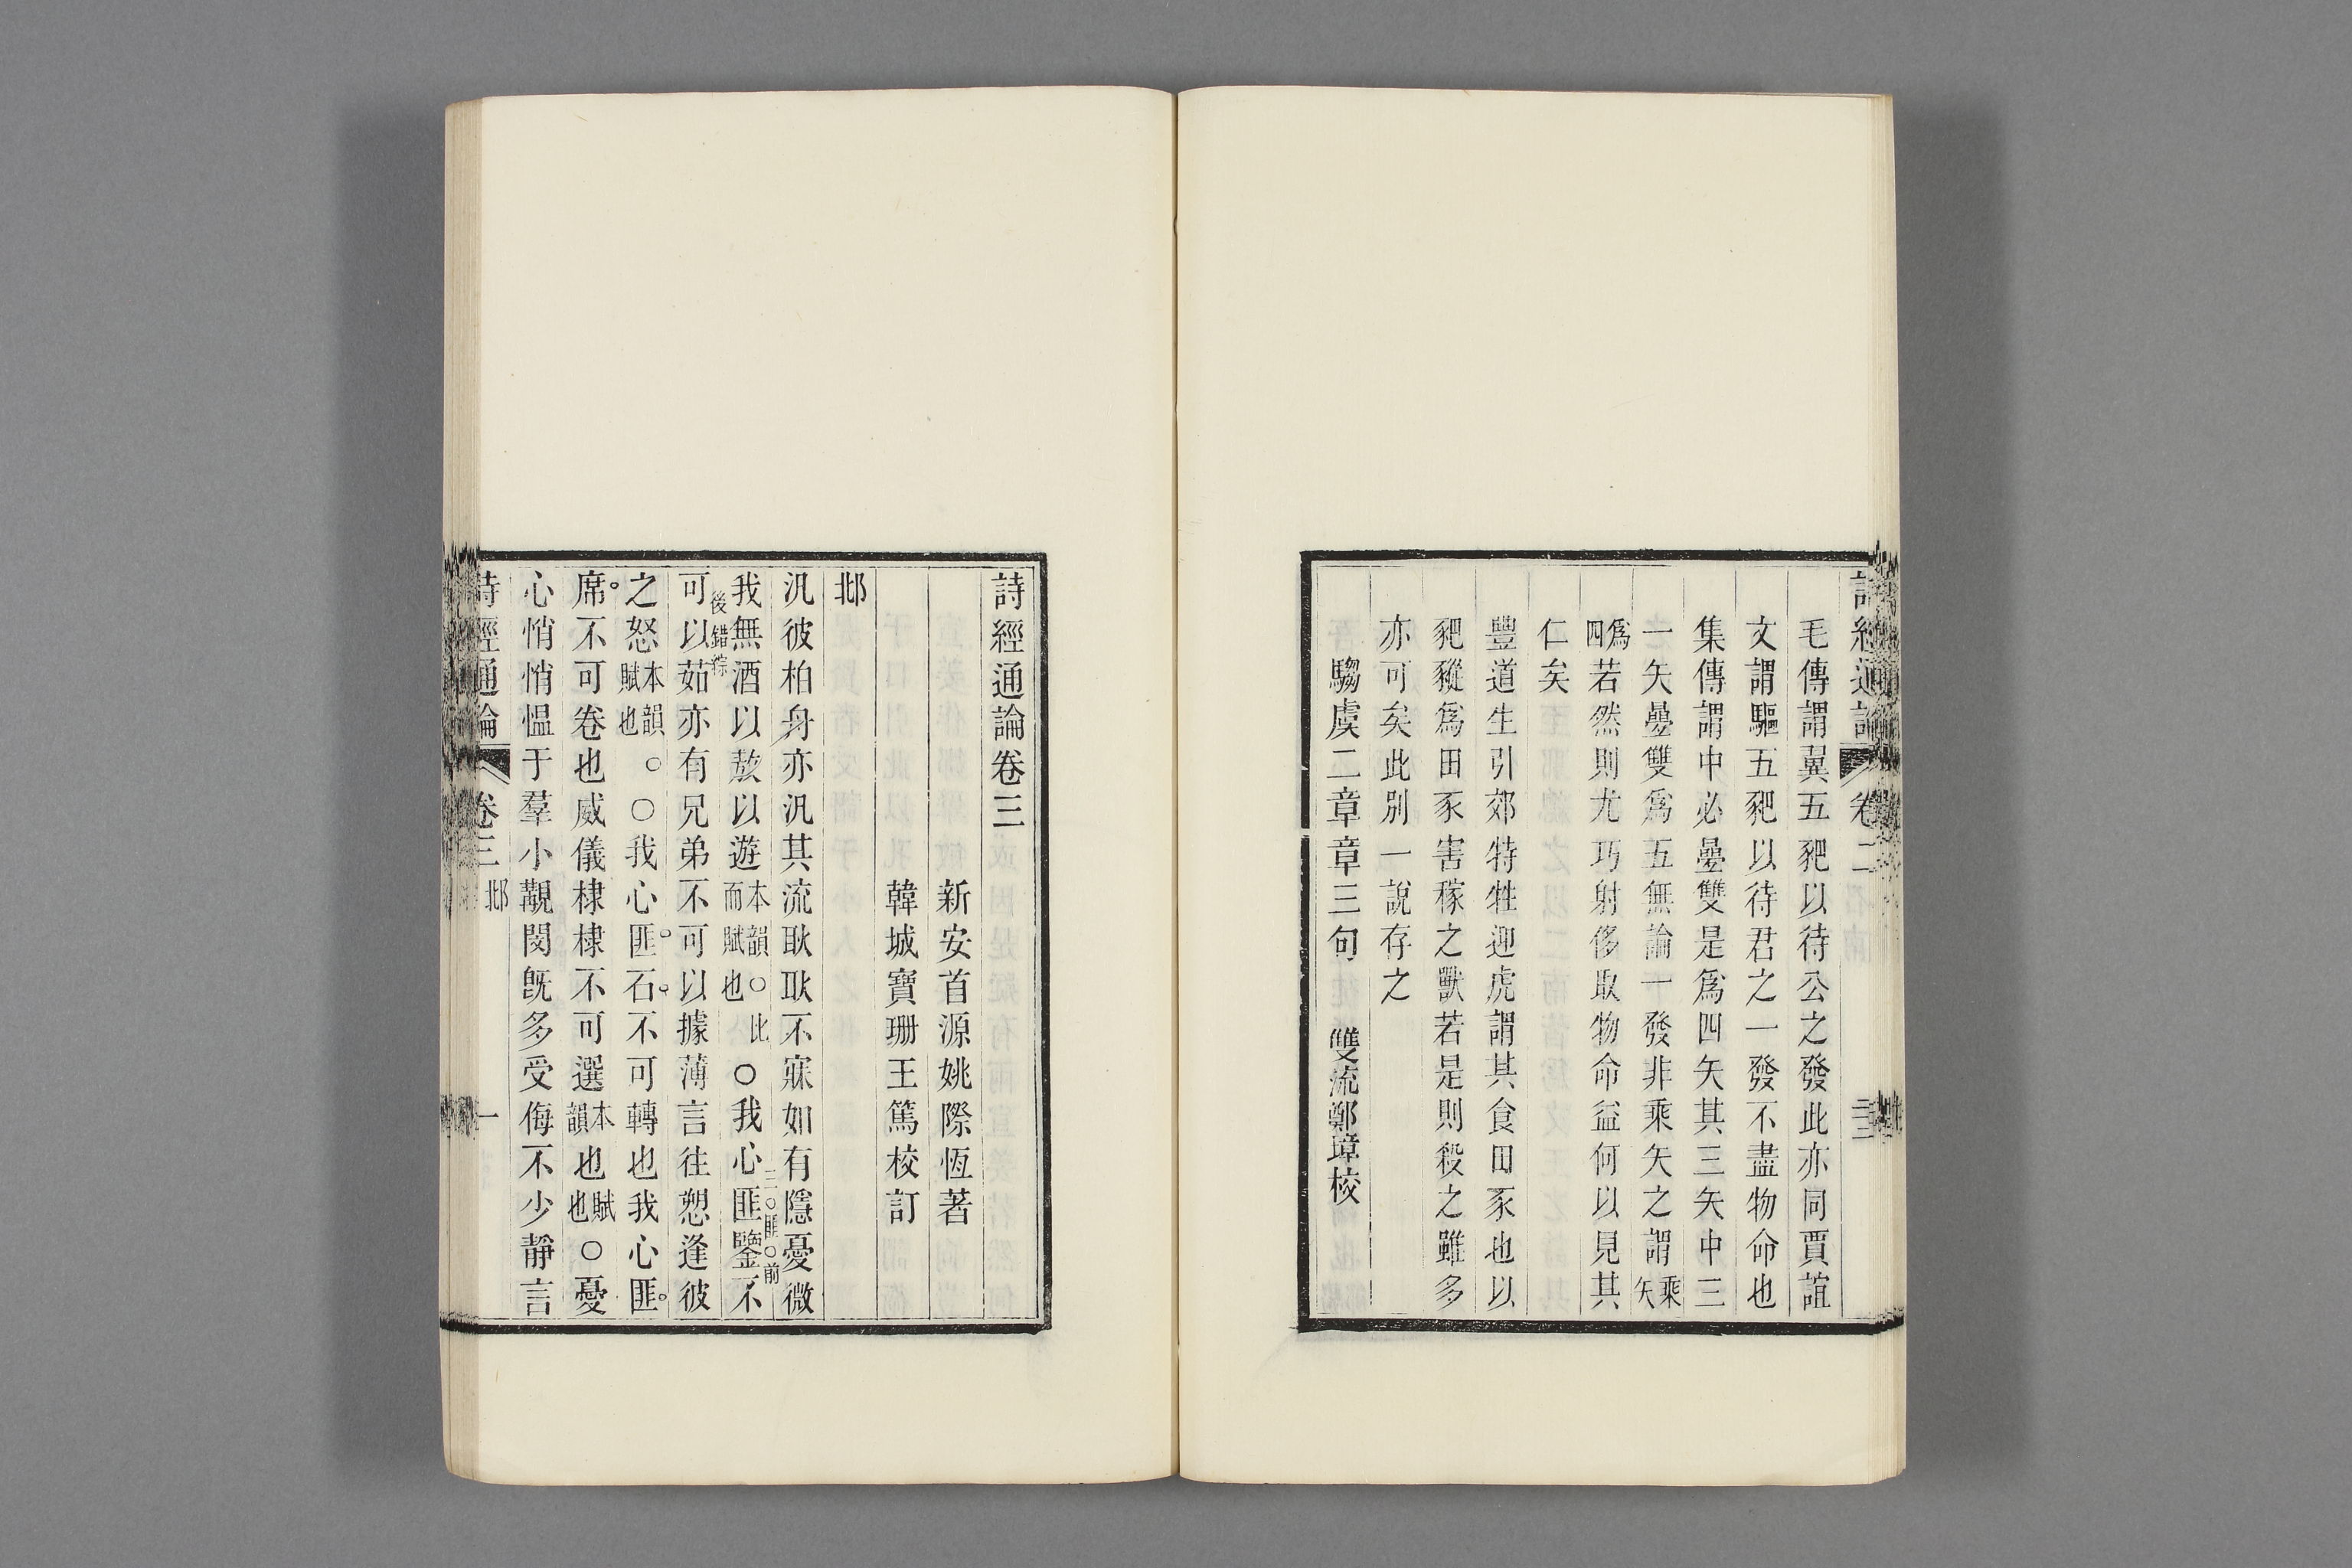 毛傳謂翼五豝以待公之發此亦同賈誼
文謂驅五豝以待君之一發不盡物命也
集傳謂中必疊雙是爲四矢其三矢中三
一矢疊雙爲五無論一發非乘矢之謂乘矢
爲四若然則尤巧射侈取物命益何以見其
仁矣
豐道生引郊特牲迎虎謂其食田豕也以
豝豵爲田豕害稼之獸若是則殺之雖多
亦可矣此別一說存之
騶虞二章章三句 雙流鄭璋校
詩經通論卷三
新安首源姚際恆著
韓城寶珊王篤校訂
邶
汎彼柏舟亦汎其流耿耿不寐如有隱憂微
我無酒以敖以遊本韻○比而賦也○我心匪鑒不
二○匪○前
後錯綜
可以茹亦有兄弟不可以據薄言往愬逢彼
之怒本韻○賦也○我心匪石不可轉也我心匪
席不可卷也威儀棣棣不可選本韻也賦也○憂
心悄悄愠于羣小覯閔旣多受侮不少靜言
詩經通論 卷三 邶 一